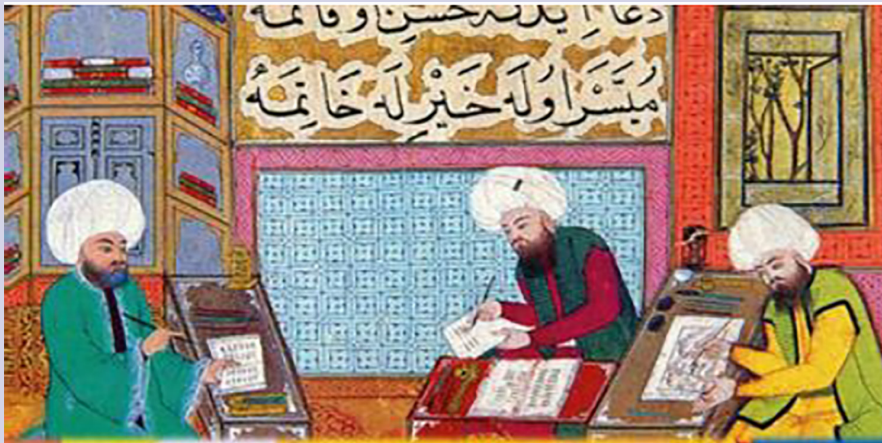 دعا ايدنه حسن
مُيَسَّر اوُلَه خَيْرِ لَه خَاتِمَهُ